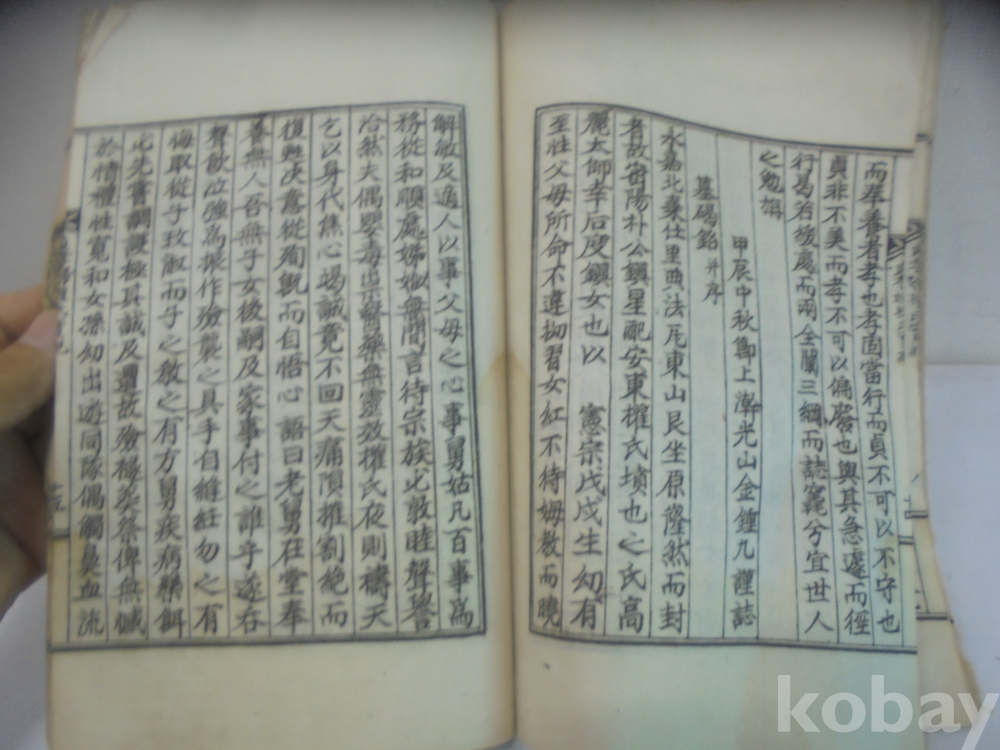 而奉養者孝也孝固當行而貞不可以不守也
貞非不美而孝不可以偏廢也與其急遽而徑
行曷若後處而兩全闡三綱而誌竁兮宜世人
之勉旃
甲辰中秋鄭上澣光山金鍾九謹誌
墓碣銘并序
永嘉北棄仕里西法尾東山艮坐原隆然而封
者故密陽朴公鎭星配安東權氏墳也之氏高
麗太師幸后度鎭女也以 憲宗戊戌生幼有
至性父母所命不違拗習女紅不待姆敎而曉
解敏及適人以事父母之心事舅姑凡百事爲
務從和順處娣姒無間言待宗族必敦睦聲譽
洽然夫偶嬰毒祟醫藥無靈效權氏夜則禱天
乞以身代焦心竭誠竟不回天痛隕摧割絶而
復甦决意從殉旣而自悟心語曰老舅在堂奉
養無人吾無子女後嗣及家事付之誰乎遂吞
聲飮泣強爲振作殮襲之具手自縫紝勿之有
悔取從子玟淑而子之敎之有方舅疾病藥餌
必先嘗調護極其誠及遭故殮殯葬祭俾無憾
於情禮性寬和女孫幼出遊同隊偶觸鼻血流
kobay